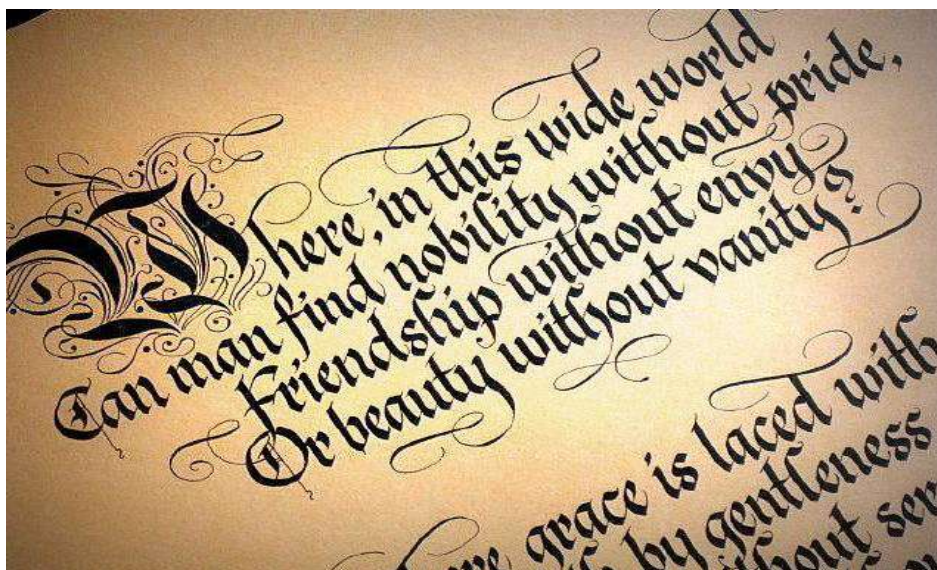 Where, in this wide world
Can man find nobility without pride,
Friendship without envy
Or beauty without vanity?
grace is laced with
by gentleness